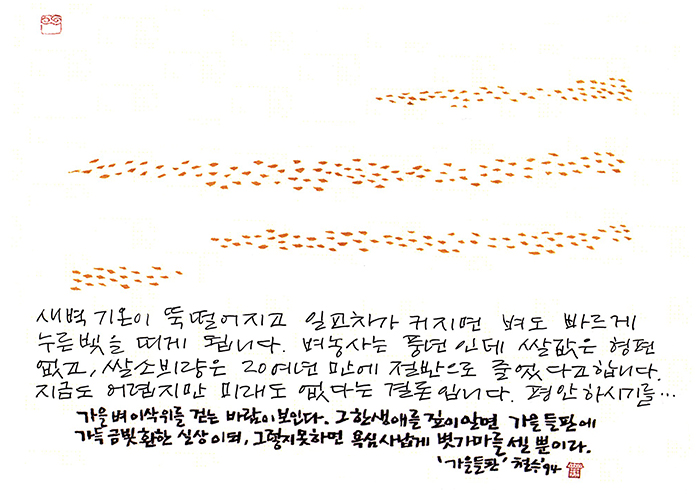 새벽 기온이 뚝떨어지고 일교차가 커지면 벼도 빠르게
누른빛을 띠게 됩니다. 벼농사는 풍년인데 쌀값은 형편
없고, 쌀소비량은 20여년 만에 절반으로 줄었다고합니다.
지금도 어렵지만 미래도 없다는 결론입니다. 평안하시기를...
가을벼이삭위를 걷는 바람이보인다. 그한생애를깊이알면 가을들판에
가득금빛환한 실상이되, 그렇지못하면 욕심사납게 볏가마를셀 뿐이라.
'가을들판' 철수'94